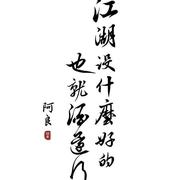 江湖设什麽好的
也就酒还行
阿良